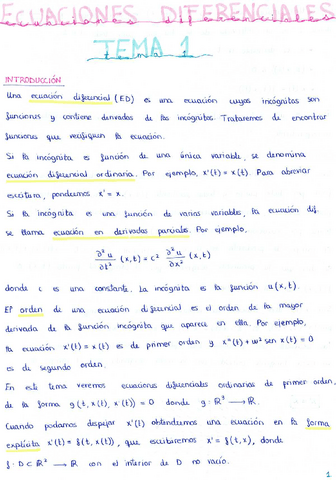 ECUACIONES DIFERENCIALES
ecuaciones diferenciales
TEMA 1
tema
INTRODUCCIÓN
Una ecuación diferencial (ED) es una ecuación cuyas incógnitas son
funciones y contiene derivadas de las incógnitas. Trataremos de encontrar
funciones que verifiquen la ecuación.
Si la incógnita es función de una única variable, se denomina
ecuación diferencial ordinaria. Por ejemplo, x'(t) = x(t). Para abreviar
escritura, pondremos x' = x.
Si la incógnita es una función de varias variables, la ecuación dif.
se llama ecuación en derivadas parciales. Por ejemplo,
∂²u/∂t² (x,t) = c² ∂²u/∂x² (x,t)
donde c es una constante. La incógnita es la función u(x,t).
El orden de una ecuación diferencial es el orden de la mayor
derivada de la función incógnita que aparece en ella. Por ejemplo,
la ecuación x'(t) = x(t) es de primer orden y x''(t) + w² sen x(t) = 0
es de segundo orden.
En este tema veremos ecuaciones diferenciales ordinarias de primer orden,
de la forma g(t, x(t), x'(t)) = 0 donde g: ℝ³ → ℝ.
Cuando podamos despejar x'(t) obtendremos una ecuación en la forma
explícita x'(t) = f(t, x(t)), que escribiremos x' = f(t,x), donde
f: D ⊂ ℝ² → ℝ con el interior de D no vacío.
1